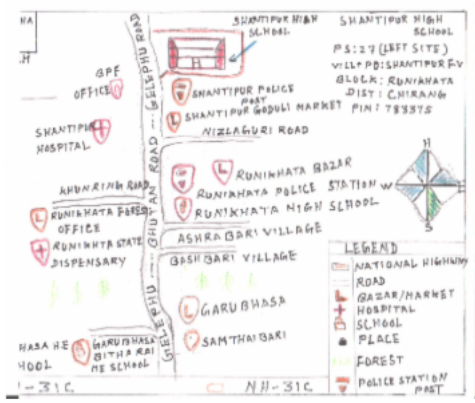 HA
SHANTIPUR HIGH
SCHOOL
SHANTIPUR HIGH
SCHOOL
PS:27 (LEFT SITE)
VILL+PO: SHANTIPUR F.V
BLOCK: RUNIKHATA
DIST: CHIRANG
PIN: 783375
GELEPHU ROAD
BPF
OFFICE
SHANTIPUR POLICE
POST
SHANTIPUR GODULI MARKET
NIZLAGURI ROAD
SHANTIPUR
HOSPITAL
RUNIKHATA BAZAR
RUNIKHATA POLICE STATION
RUNIKHATA HIGH SCHOOL
AHUNRING ROAD
RUNIKHATA FOREST
OFFICE
RUNIKHTA STATE
DISPENSARY
ASHRABARI VILLAGE
BASHBARI VILLAGE
GELEPHU --- BHUTAN ROAD ---
N
W
S
GARUBHASA
SAMTHAIBARI
HASA HE
HOOL
GARUBHASA
BITHARAI
ME SCHOOL
LEGEND
NATIONAL HIGHWAY
ROAD
BAZAR/MARKET
HOSPITAL
SCHOOL
PLACE
FOREST
POLICE STATION
POST
-31C
NH-31C